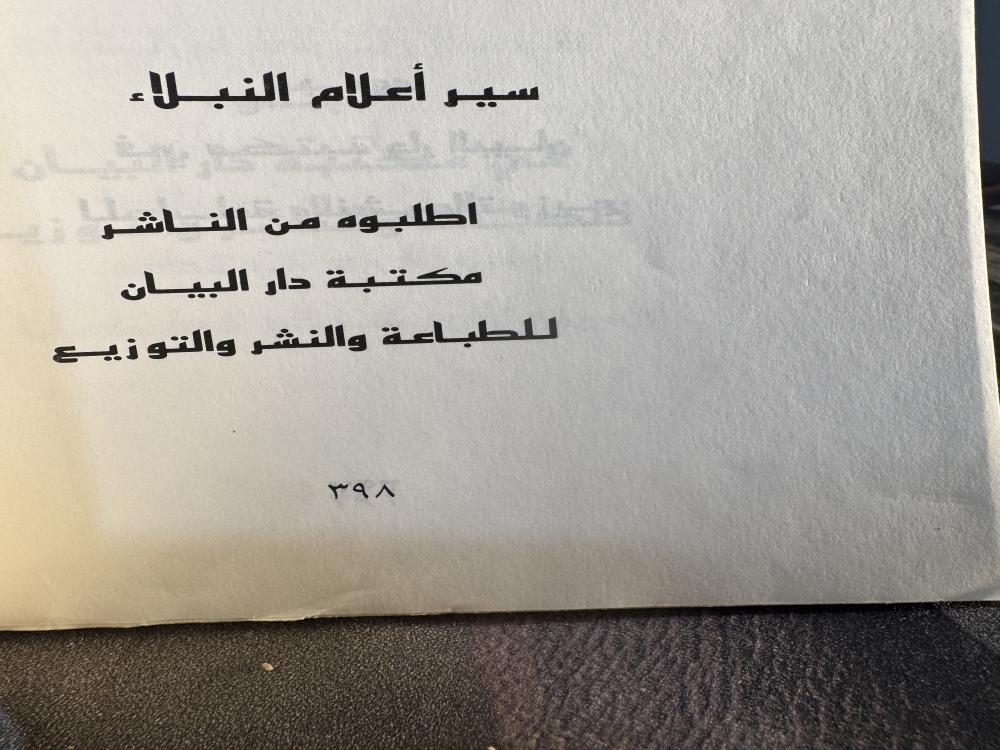 سير أعلام النبلاء
اطلبوه من الناشر
مكتبة دار البيان
للطباعة والنشر والتوزيع
٣٩٨